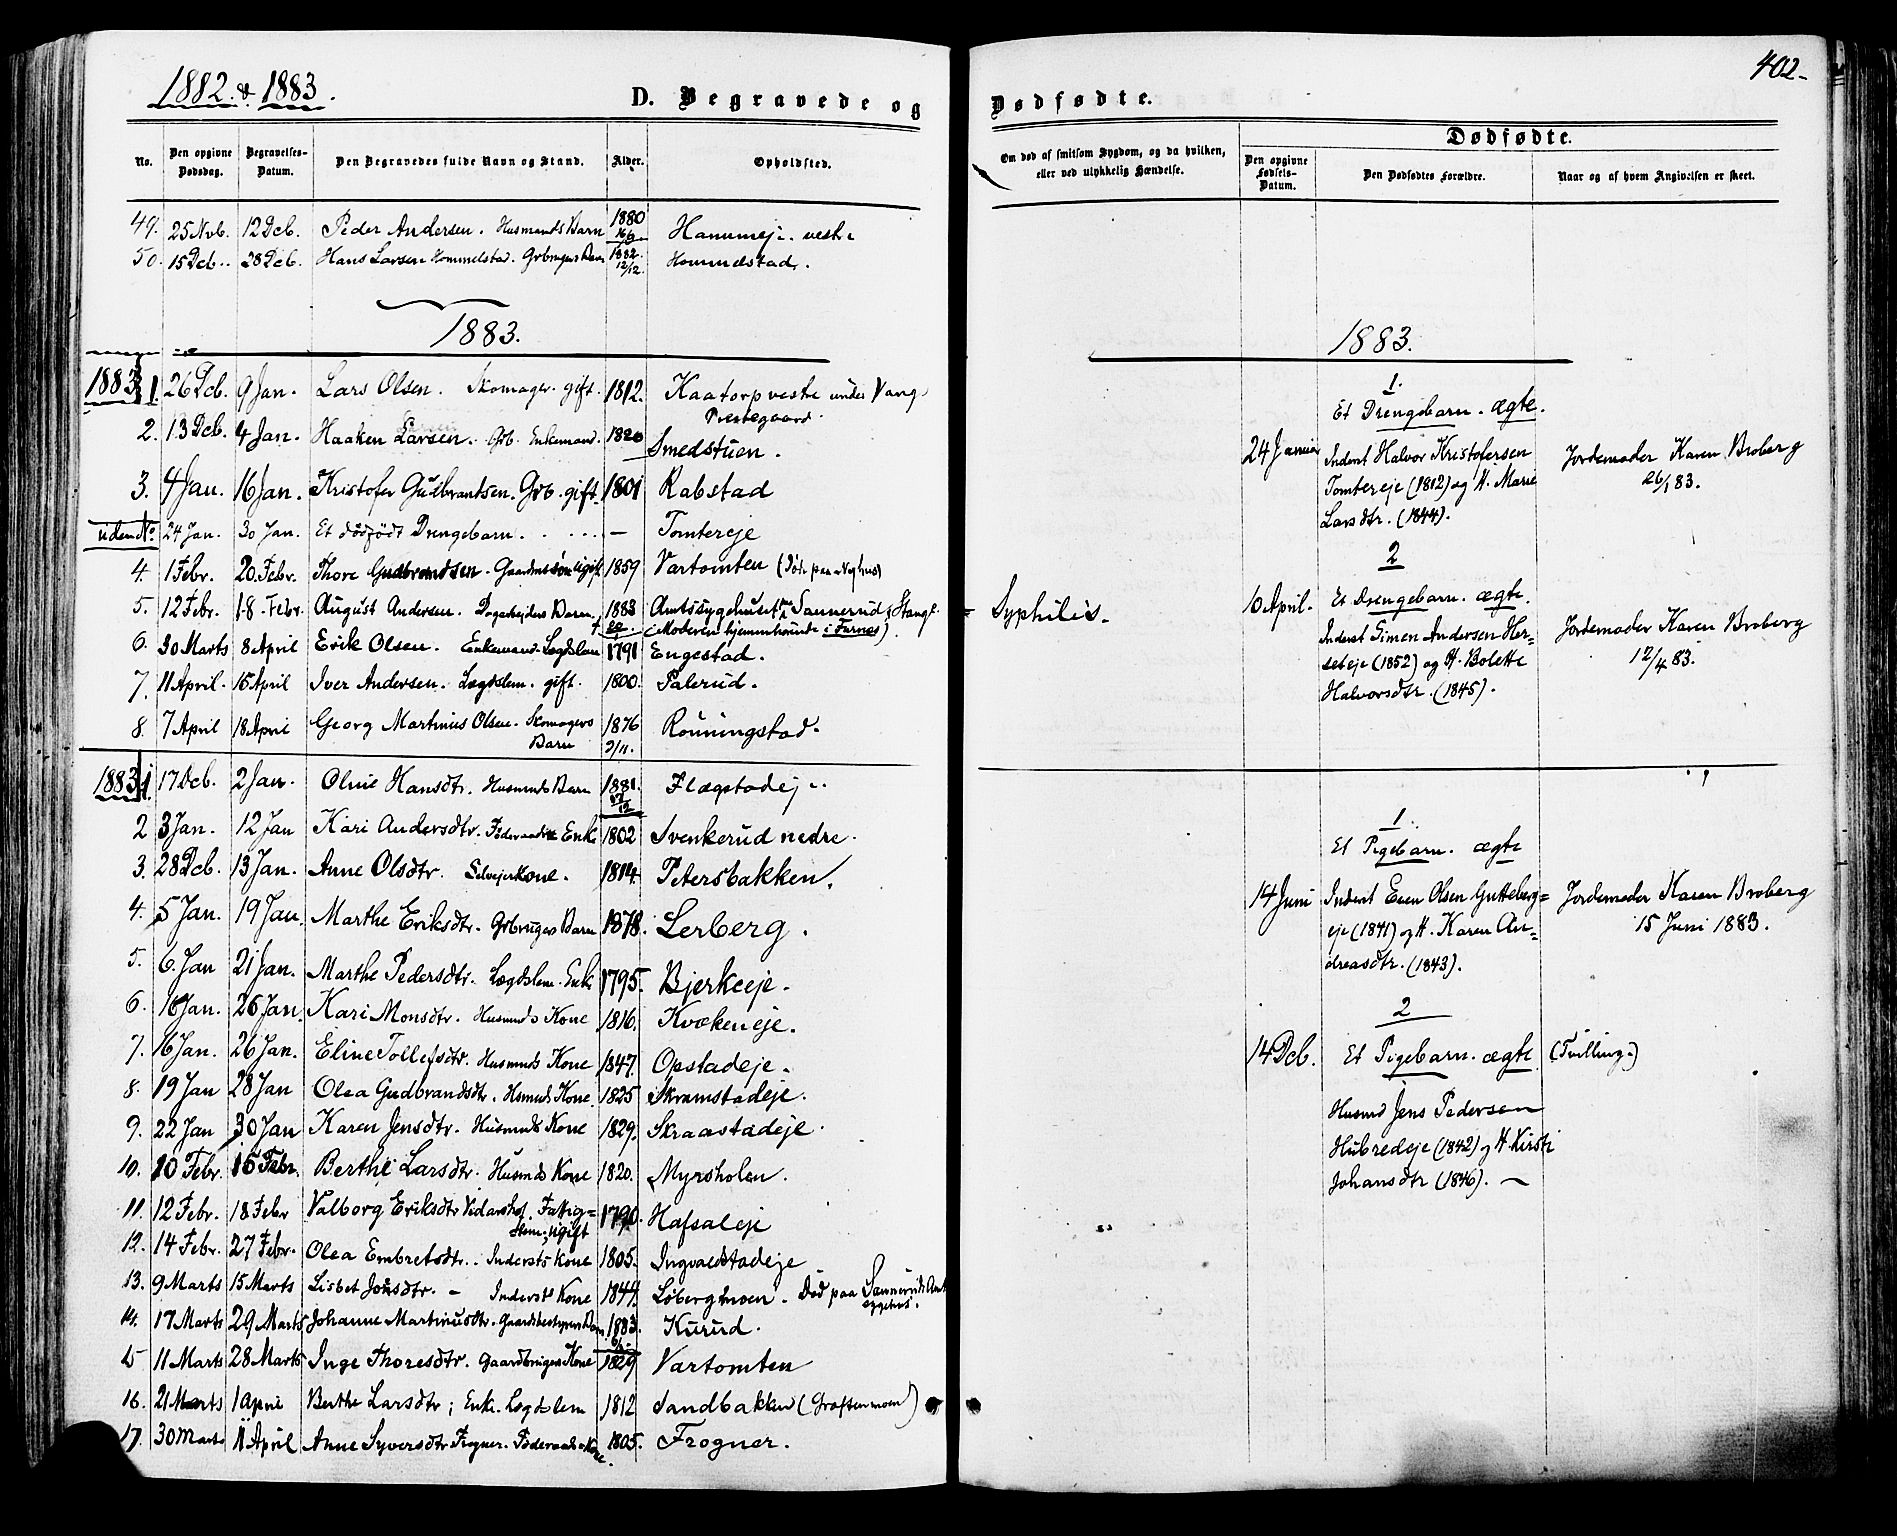 1882 & 1883.
D. Begravede og
No. Den opgivne Dødsdag. Begravelses-Datum. Den Begravedes fulde Navn og Stand. Alder. Opholdsted.
49. 25 Nvb. 12 Dcb. Peder Andersen. Husmands Barn 1880 16/6 Hammeje. vestre
50. 15 Dcb. 28 Dcb. Hans Larsen Hommelstad. Grbrugers Barn 1882 12/12. Hommelstad.
1883.
1883 1. 26 Dcb. 9 Jan. Lars Olsen. Skomager. gift. 1812. Kaatorp vestre under Vang
Prestegaard.
2. 13 Dcb. 4 Jan. Haaken Larsen. Grb. Enkemand. 1820 Smedstuen.
3. 4 Jan. 16 Jan. Kristofer Gulbrandsen. Grb. gift. 1801 Rabstad
uden No 24 Jan. 30 Jan. Et dödfödt Drengebarn. . . . . — Tomtereje
4. 1 Febr. 20 Febr. Thore Gudbrandsen. Gaardmsön Ugift 1859 Vartomten
5. 12 Febr. 18 Febr. August Andersen. Dagarbejders Barn 1883 Amtssygehuset Sannerud, Stange
(Moderen hjemmhörende i Furnes).
6. 30 Marts 8 April Erik Olsen. Enkemand. Lægdslem 1791 Engestad.
7. 11 April. 15 April Iver Andersen. Lægdslem. gift. 1800. Palerud.
8. 7 April 18 April Georg Martinius Olsen. Skomagers
Barn 1876 2/11. Rönningstad.
1883 1. 17 Dcb. 2 Jan. Oline Hansdtr. Husmnds Barn 1881. Flagstadeje.
2 3 Jan. 12 Jan Kari Andersdtr. Föderaads Enke 1802 Svenkerud nedre.
3. 28 Dcb. 13 Jan. Anne Olsdtr. Selvejerkone. 1814. Petersbakken.
4. 5 Jan. 19 Jan. Marthe Eriksdtr. Grbrugers Barn 1878. Lerberg.
5. 6. Jan 21 Jan. Marthe Pedersdtr. Lægdslem. Enke 1795. Bjerkeeje.
6. 16 Jan. 26 Jan. Kari Monsdtr. Husmnds Kone 1816. Kvækeneje.
7. 16 Jan. 26 Jan. Eline Tollefsdtr. Husmnds Kone 1847. Opstadeje.
8. 19 Jan 28 Jan Olea Gudbrandsdtr. Hsmnds Kone. 1825 Skramstadeje.
9. 22 Jan 30 Jan Karen Jensdtr. Husmnds Kone 1829. Skraastadeje.
10. 10 Febr. 15 Febr. Berthe Larsdtr. Husmds Kone 1820. Myrsholen.
11. 12 Febr. 18 Febr Valborg Eriksdtr Vidarshof. Fattig=
lem, Ugift 1790. Hafsaleje
12. 14 Febr. 27 Febr. Olea Embretsdtr. Indersts Kone 1805. Ingvaldstadeje
13. 9 Marts 15 Marts Lisbet Jonsdtr. — Inderst Kone 1844. Löbergsmoen. Död paa Sannerud
sygehus.
14. 17 Marts 29 Marts Johanne Martinusdtr. Gaardsbestyrers Barn 1883. Kurud.
15 11 Marts 28 Marts Inge Thoresdtr. Gaardbrugers Kone 1829 Vartomten
16. 21 Marts 1 April Berthe Larsdtr; Enke. Lægdslem 1812 Sandbakken (Grøftenmoen)
17. 30 Marts 11 April Anne Syversdtr Frogner. Föderaads Kone. 1805. Frogner.
402.
Dødfødte.
Om død af smitsom Sygdom, og da hvilken,
eller ved ulykkelig Hændelse.
Dødfødte.
Den opgivne Fødsels-Datum. Den Dødfødtes Forældre. Naar og af hvem Angivelsen er skeet.
1883.
1.
Et Drengebarn. ægte.
24 Januar Inderst Halvor Kristofersen
Tomtereje (1812) og H. Marie
Larsdtr. (1844).
Jordemoder Karen Broberg
26/1 83.
2
Syphilis.
10 April. Et Drengebarn. ægte.
Inderst Simen Andersen Her-
seteje (1852) og H. Bolette
Halvorsdtr. (1845).
Jordemoder Karen Broberg
12/4 83.
1.
Et Pigebarn. ægte
14 Juni Inderst Even Olsen Gutteberg=
eje (1841) og H. Karen An=
dreasdtr. (1843).
Jordemoder Karen Broberg
15 Juni 1883.
2
14 Dcb. Et Pigebarn. ægte (Tvilling.)
Husmd Jens Pedersen
Hubredeje (1842) og H. Kirsti
Johansdtr (1846). —